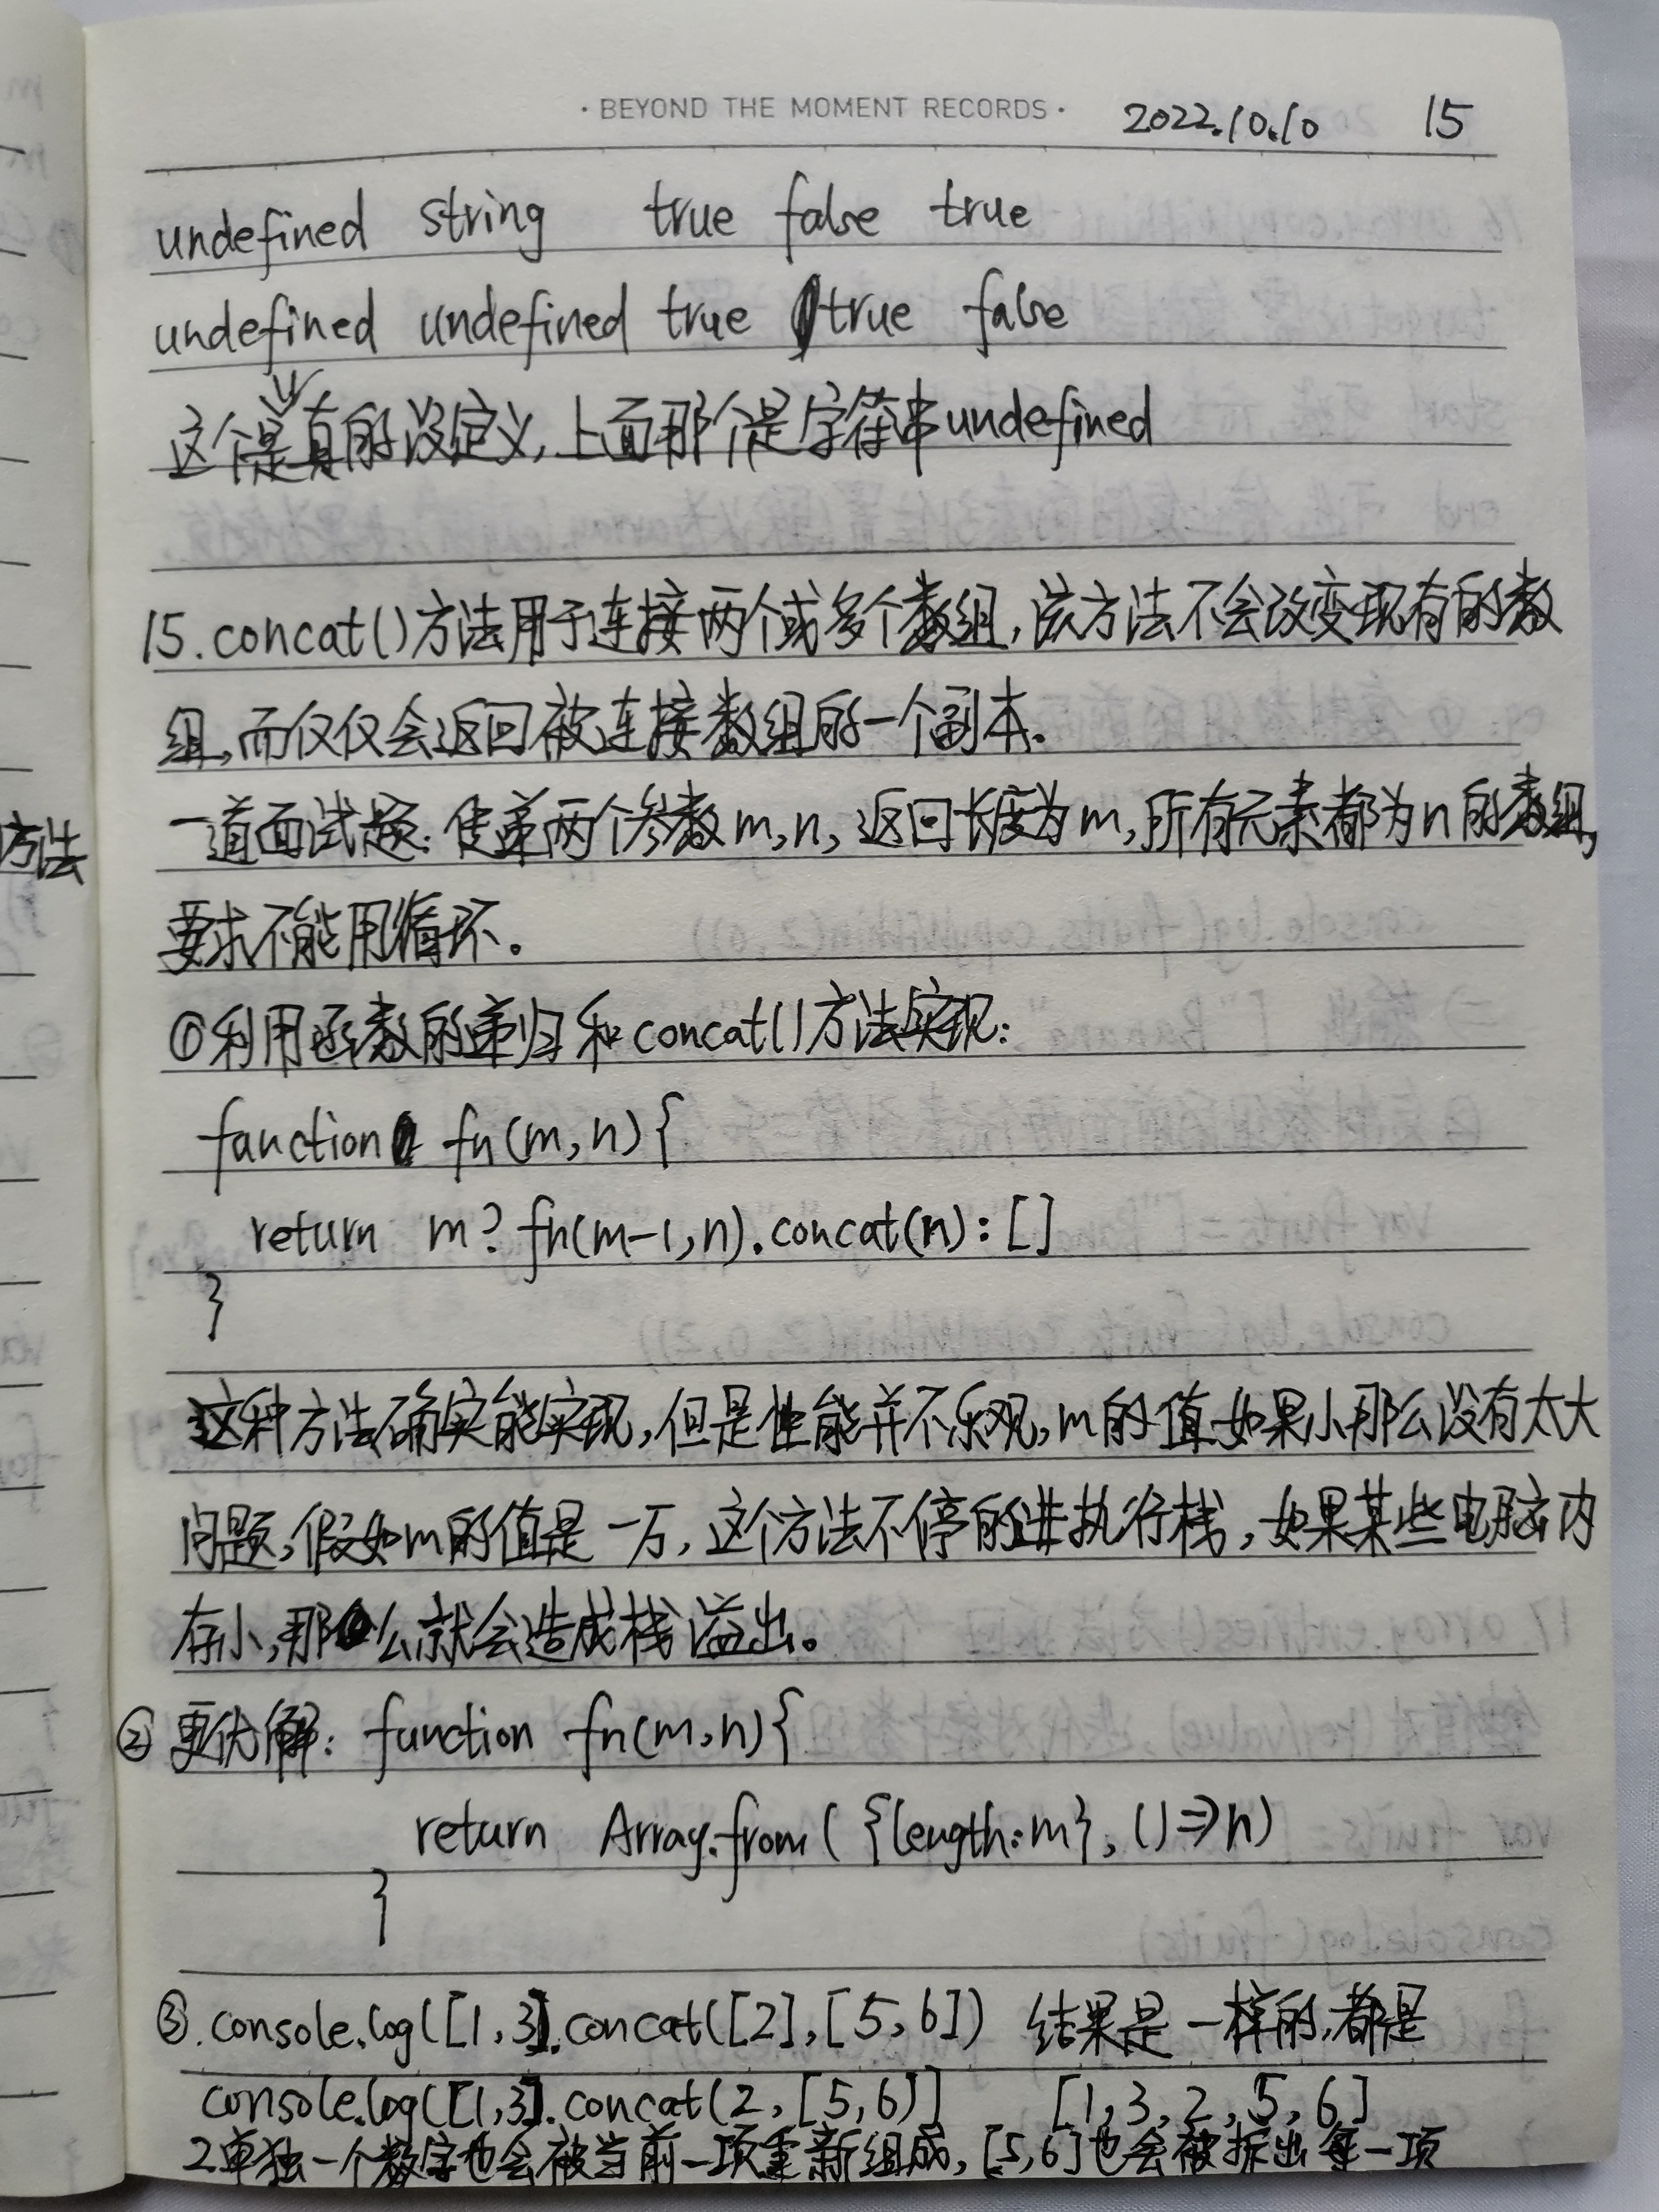 · BEYOND THE MOMENT RECORDS · 2022.10.10 15
undefined string true false true
undefined undefined true true false
这个是真的没定义,上面那个是字符串undefined
15.concat()方法用于连接两个或多个数组,该方法不会改变现有的数
组,而仅仅会返回被连接数组的一个副本.
一道面试题:传递两个参数m,n,返回长度为m,所有元素都为n的数组,
方法
要求不能用循环。
①利用函数的递归和concat()方法实现:
function fn(m,n){
return m?fn(m-1,n).concat(n):[]
}
这种方法确实能实现,但是性能并不乐观,m的值如果小那么没有太大
问题,假如m的值是一万,这个方法不停的进执行栈,如果某些电脑内
存小,那么就会造成栈溢出。
②更优解:function fn(m,n){
return Array.from({length:m},()=>n)
}
③.console.log([1,3].concat([2],[5,6]) 结果是一样的,都是
console.log([1,3].concat(2,[5,6)] [1,3,2,5,6]
2单独一个数字也会被当前一项重新组成,[5,6]也会被拆出每一项